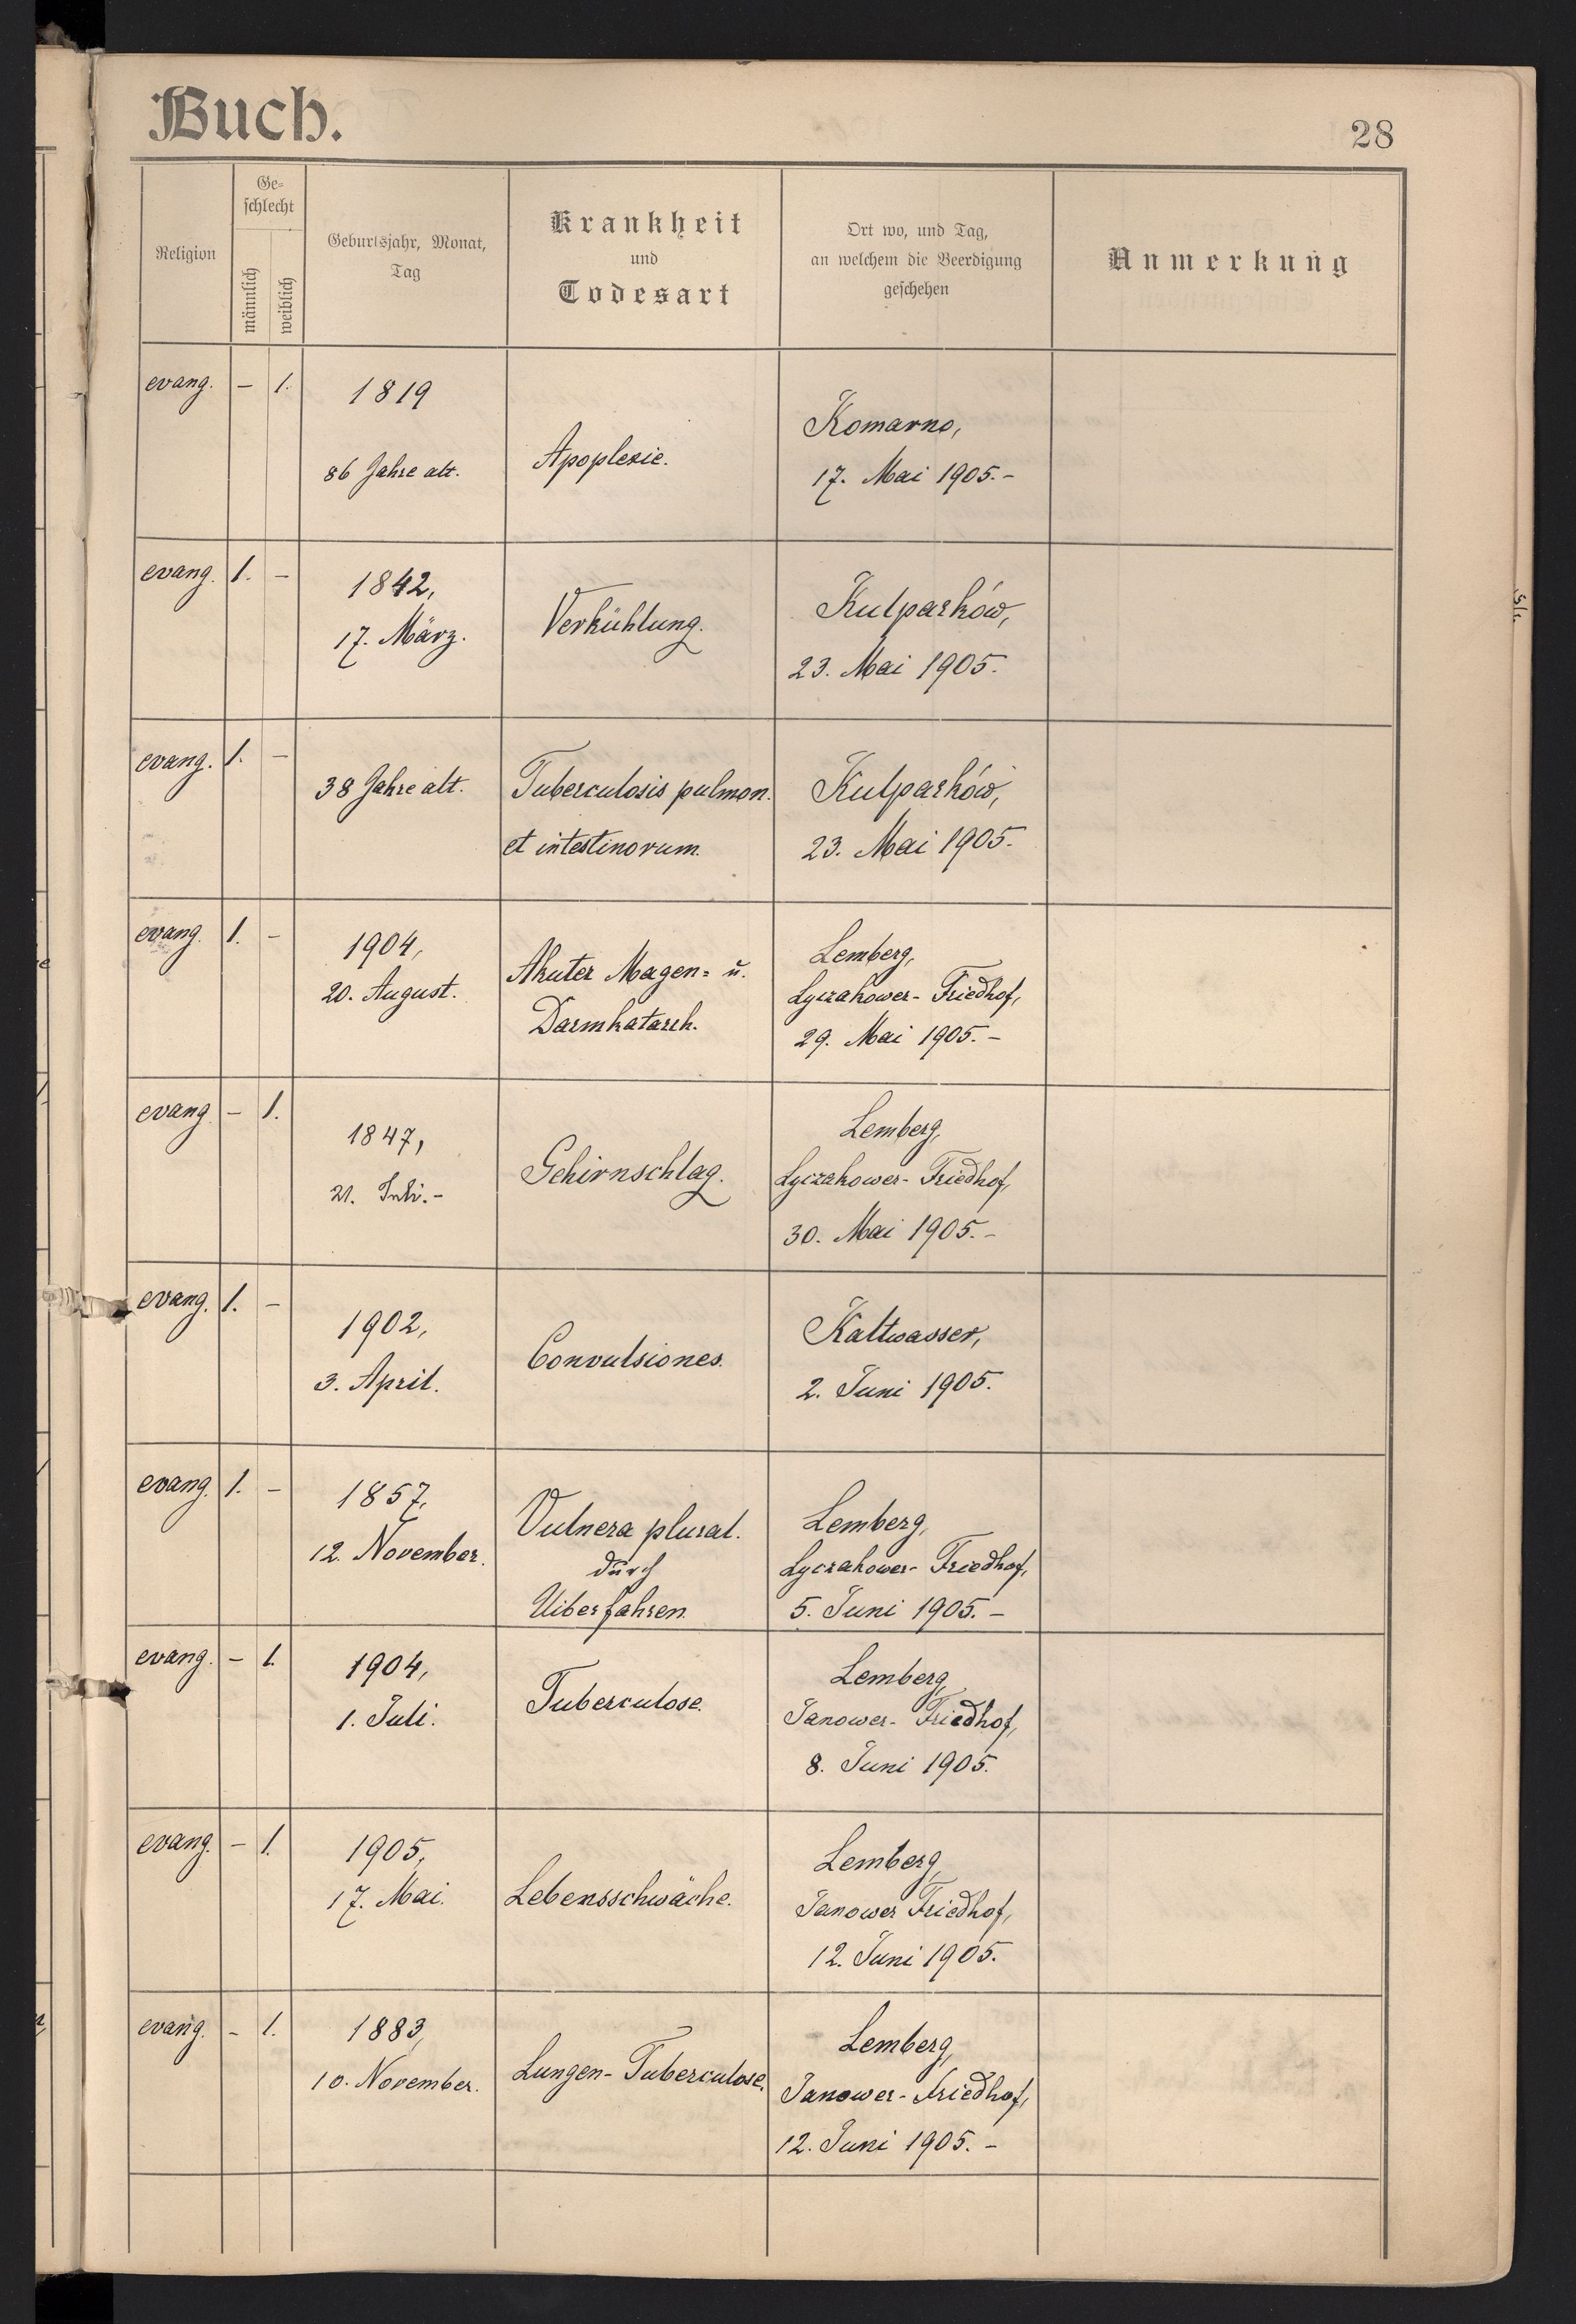 Buch.
28
Religion
Ge-
schlecht
männlich
weiblich
Geburtsjahr, Monat,
Tag
Krankheit
und
Todesart
Ort wo, und Tag,
an welchem die Beerdigung
geschehen
Anmerkung
evang. – 1.
1819
86 Jahre alt.
Apoplexie.
Komarno,
17. Mai 1905.–
evang. 1. –
1842,
17. März.
Verkühlung.
Kulparków,
23. Mai 1905.
evang. 1. –
38 Jahre alt.
Tuberculosis pulmon.
et intestinorum.
Kulparków,
23. Mai 1905.
evang. 1. –
1904,
20. August.
Akuter Magen= u.
Darmkatarrh.
Lemberg,
Lyczakower- Friedhof,
29. Mai 1905.–
evang – 1.
1847,
21. Juli.–
Gehirnschlag.
Lemberg,
Lyczakower- Friedhof,
30. Mai 1905.–
evang. 1. –
1902,
3. April.
Convulsiones.
Kaltwasser,
2. Juni 1905.
evang. 1. –
1857,
12. November.
Vulnera plural.
durch
Uiberfahren.
Lemberg,
Lyczakower- Friedhof,
5. Juni 1905.–
evang. – 1.
1904,
1. Juli.
Tuberculose.
Lemberg,
Janower- Friedhof,
8. Juni 1905.
evang. – 1.
1905,
17. Mai.
Lebensschwäche.
Lemberg,
Janower Friedhof,
12. Juni 1905.
evang. – 1.
1883,
10. November.
Lungen-Tuberculose.
Lemberg,
Janower- Friedhof,
12. Juni 1905.–